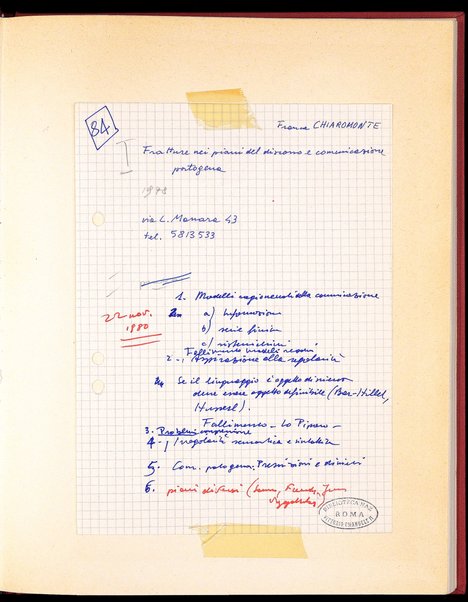 84
Franca CHIAROMONTE
I
Fratture nei piani del discorso e comunicazione
patogena
1978
via L. Manara 43
tel. 5813533
22 nov.
1980
1. Modelli della comunicazione
a) Informazione
b) serie finite
c)
Fallimento modelli
2 - Aspirazione alla regolarità
Se il linguaggio è oggetto di
deve essere oggetto definibile (Bar-Hillel,
Husserl).
Fallimento - Lo Piparo -
3. Problemi
4 - Irregolarità semantica e sintattica
5. Com. patogena: e
6. piani di
BIBLIOTECA NAZ.
ROMA
VITTORIO EMANUELE II